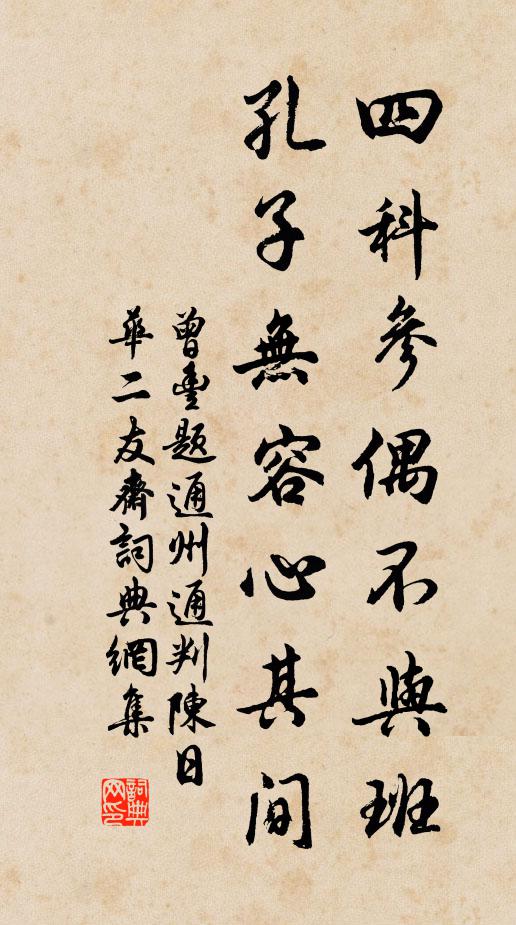 四科參偶不與班
孔子無容心其間
曾豐題通州通判陳日
華二友齋詞典網集
詞典
网印